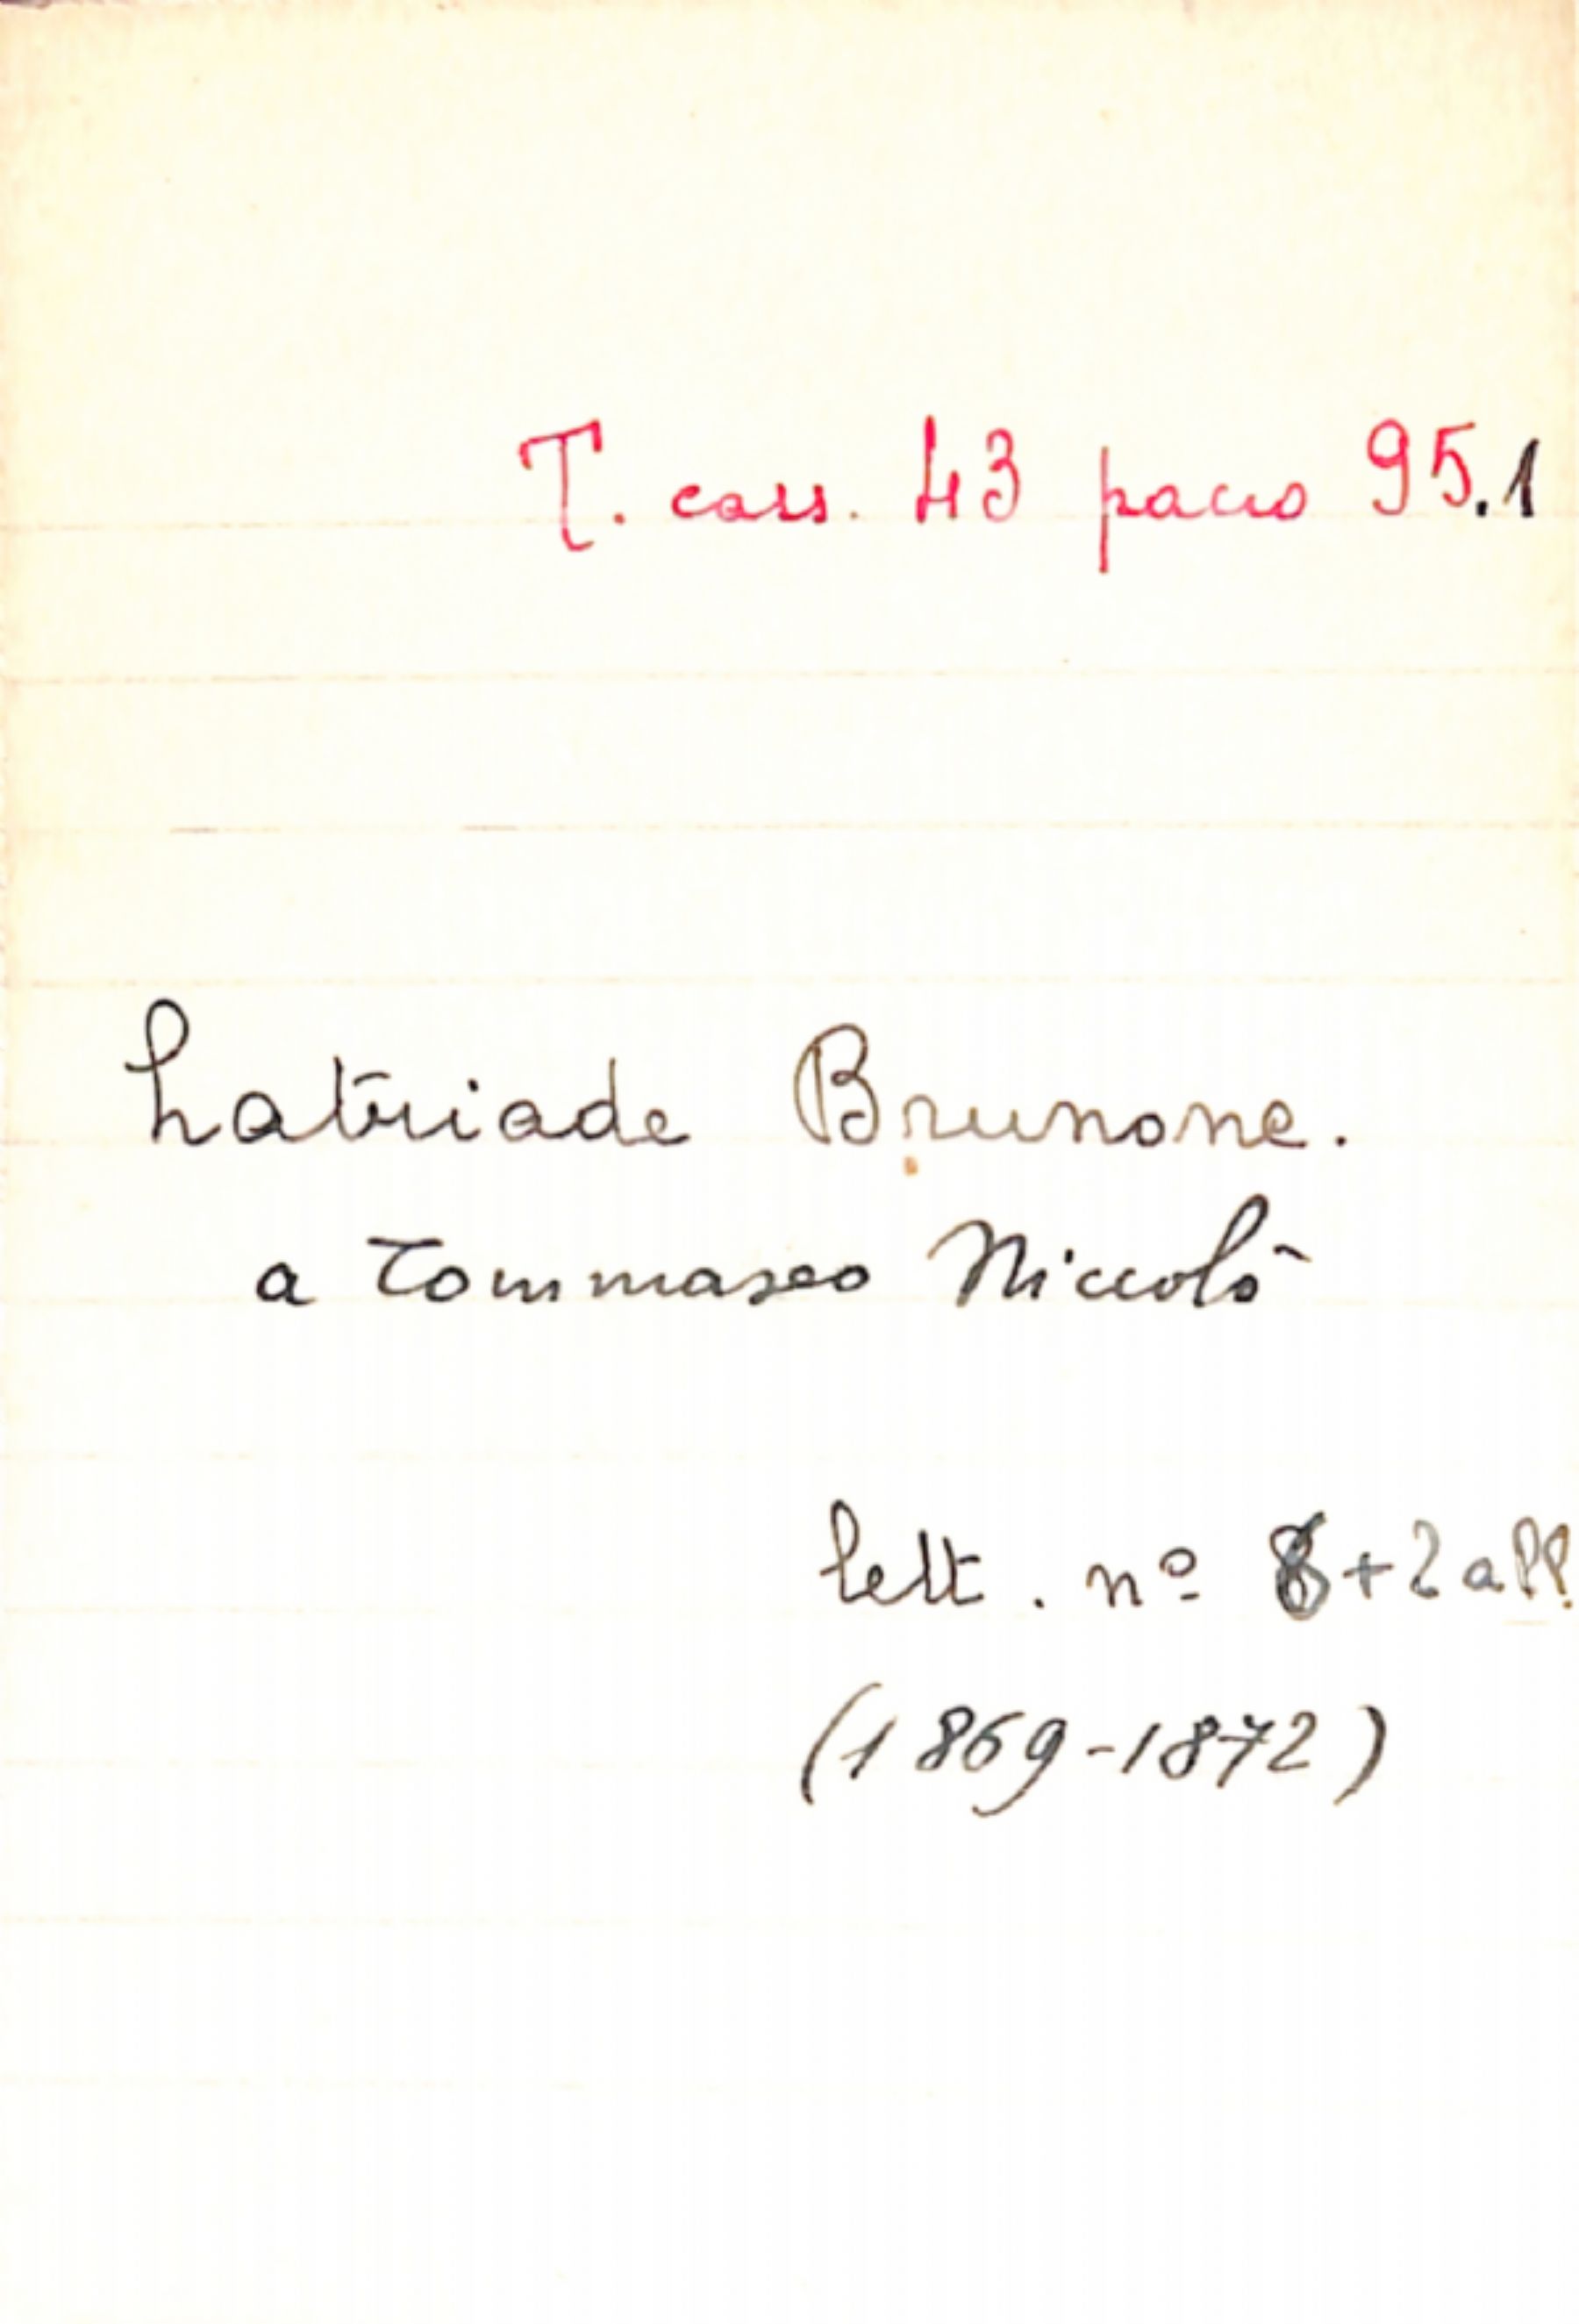 T. cass. 43 pacco 95.1
Latriade Brunone.
a Tommaseo Niccolò
lett. nº 8+2 app.
(1869-1872)